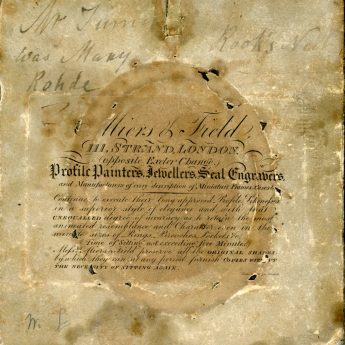 Mr Turner
was Mary Rook's Nest
Rohde
Miers & Field,
111, STRAND, LONDON,
(opposite Exeter Change,)
Profile Painters, Jewellers, Seal Engravers,
and Manufacturers of every description of Miniature Frames, Cases &c
Continue to execute their long approved Profile Likenesses
in a superior style of elegance and with that
UNEQUALLED degree of accuracy as to retain the most
animated resemblance and Character, even in the
minute sizes of Rings, Brooches, Lockets &c.
Time of Sitting not exceeding five Minutes.
Messrs. Miers & Field preserve all the ORIGINAL SHADES
by which they can at any period furnish COPIES WITHOUT
THE NECESSITY OF SITTING AGAIN.